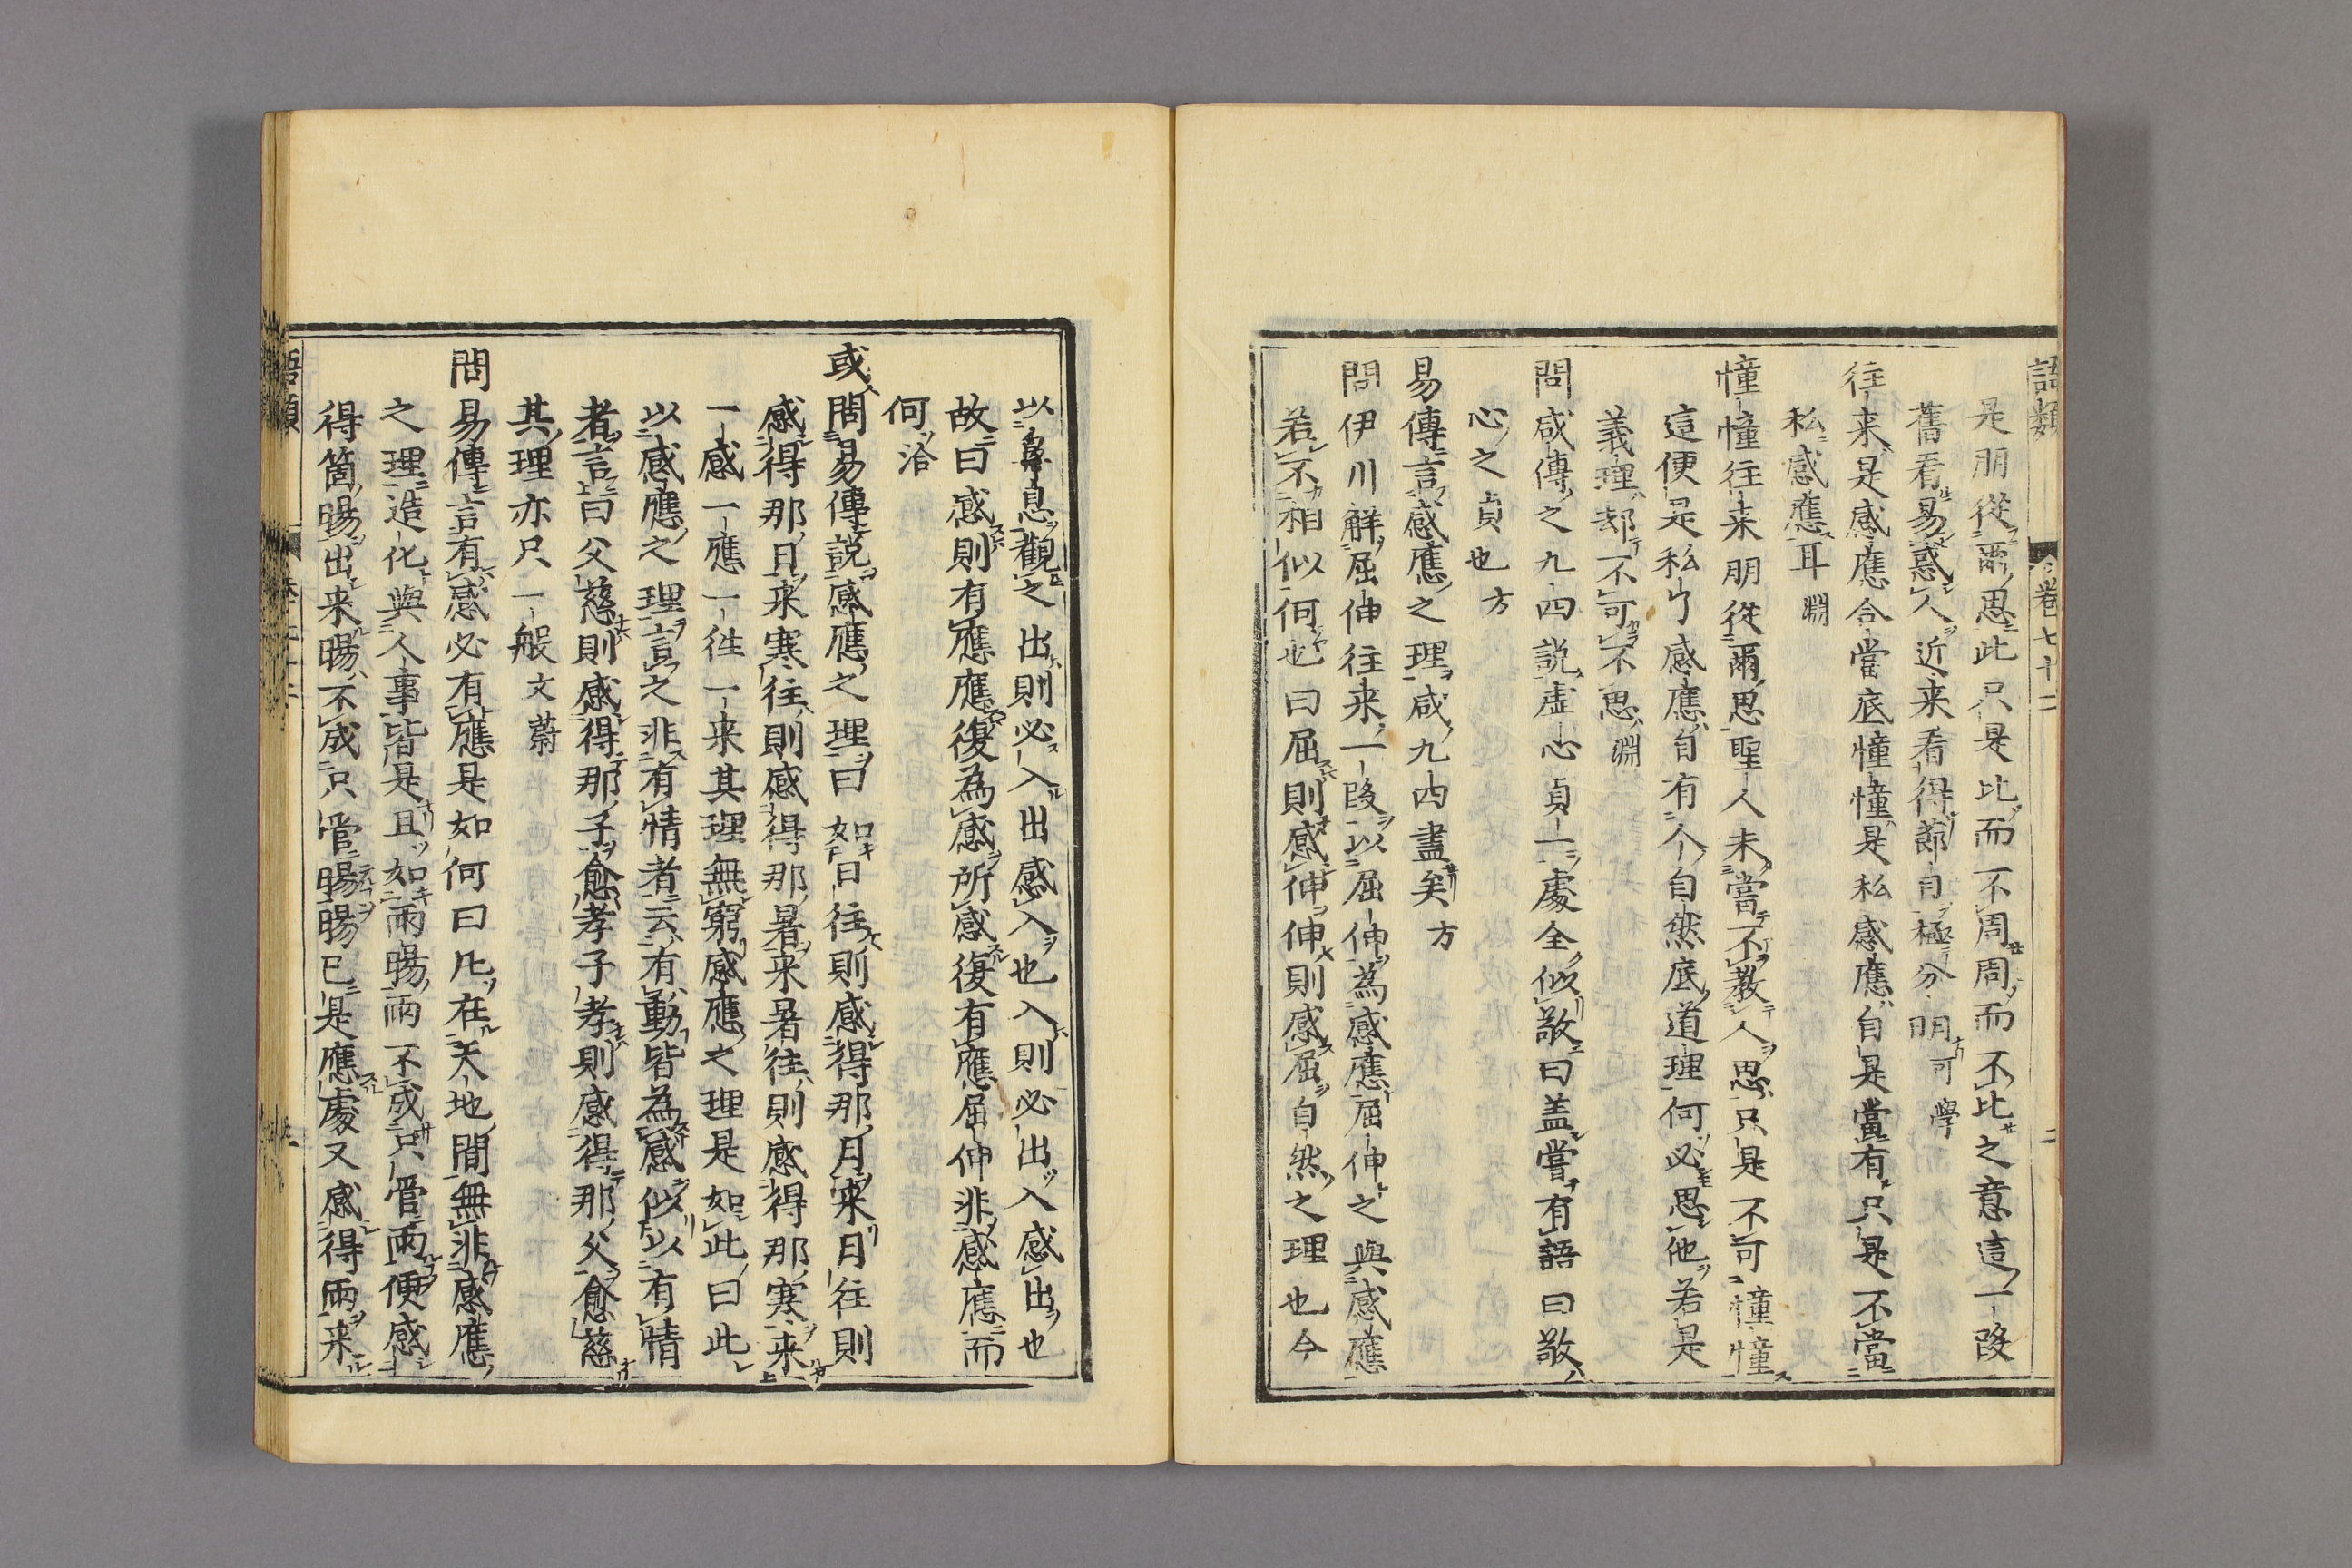 語類 卷七十二 二
是朋從爾思此只是比而不周周而不比之意這一段
舊看易惑人近来看得節目極分明可學
往来是感應合當底憧憧是私感應自是當有只是不當
私感應耳淵
憧憧往来朋從爾思聖人未嘗不教人思只是不可憧憧
這便是私了感應自有个自然底道理何必思他若是
義理却不可不思淵
問咸傳之九四説虚心貞一處全似敬曰盖嘗有語曰敬
心之貞也方
易傳言感應之理咸九四盡矣方
問伊川解屈伸往来一段以屈伸為感應屈伸之與感應
若不相似何也曰屈則感伸伸則感屈自然之理也今
以鼻息觀之出則必入出感入也入則必出入感出也
故曰感則有應應復為感所感復有應屈伸非感應而
何洽
或問易傳説感應之理曰如日往則感得那月来月往則
感得那日来寒往則感得那暑来暑往則感得那寒来
一感一應一徃一来其理無窮感應之理是如此曰此
以感應之理言之非有情者云有動皆為感似以有情
者言曰父慈則感得那子愈孝子孝則感得那父愈慈
其理亦只一般文蔚
問易傳言有感必有應是如何曰凡在天地間無非感應
之理造化與人事皆是且如雨暘雨不成只管雨便感
得箇暘出来暘不成只管暘暘已是應處又感得雨来
語類